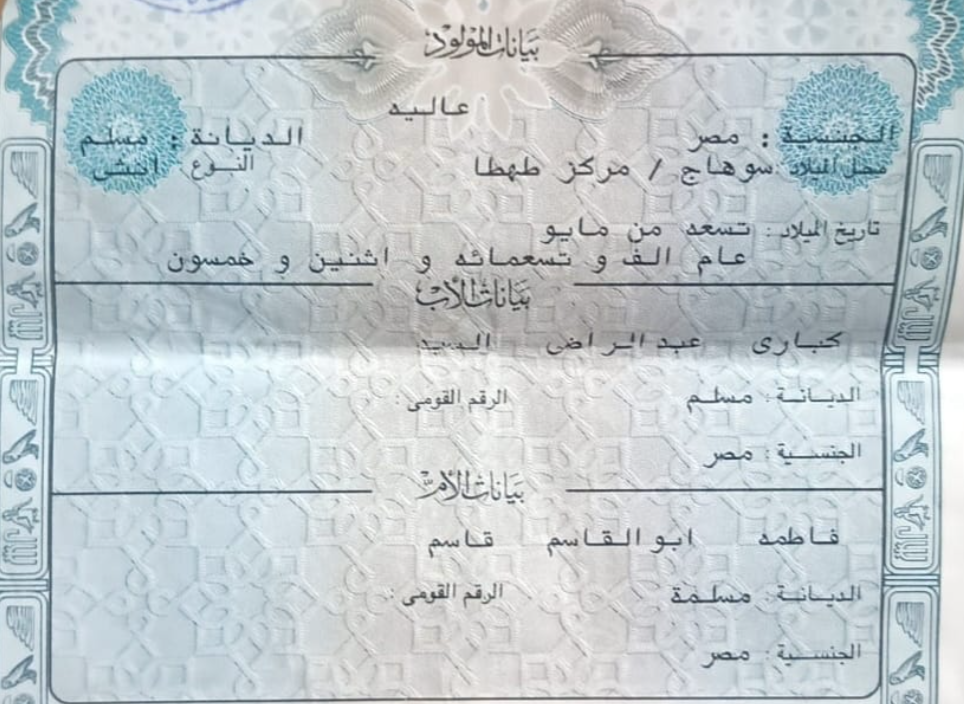 بيانات المولود
عاليه
الجنسية : مصر الديانة : مسلم
محل الميلاد : سوهاج / مركز طهطا النوع : انثى
تاريخ الميلاد : تسعه من مايو
عام الف و تسعمائه و اثنين و خمسون
بيانات الأب
كبارى عبد الراضى السيد
الديانة : مسلم الرقم القومى :
الجنسية : مصر
بيانات الأم
فاطمه ابو القاسم قاسم
الديانة : مسلمة الرقم القومى :
الجنسية : مصر